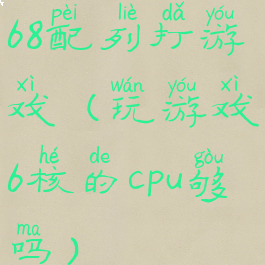 pèi liè dǎ yóu
68配列打游
xì wán yóu xì
戏(玩游戏
hé de gòu
6核的cpu够
ma
吗)